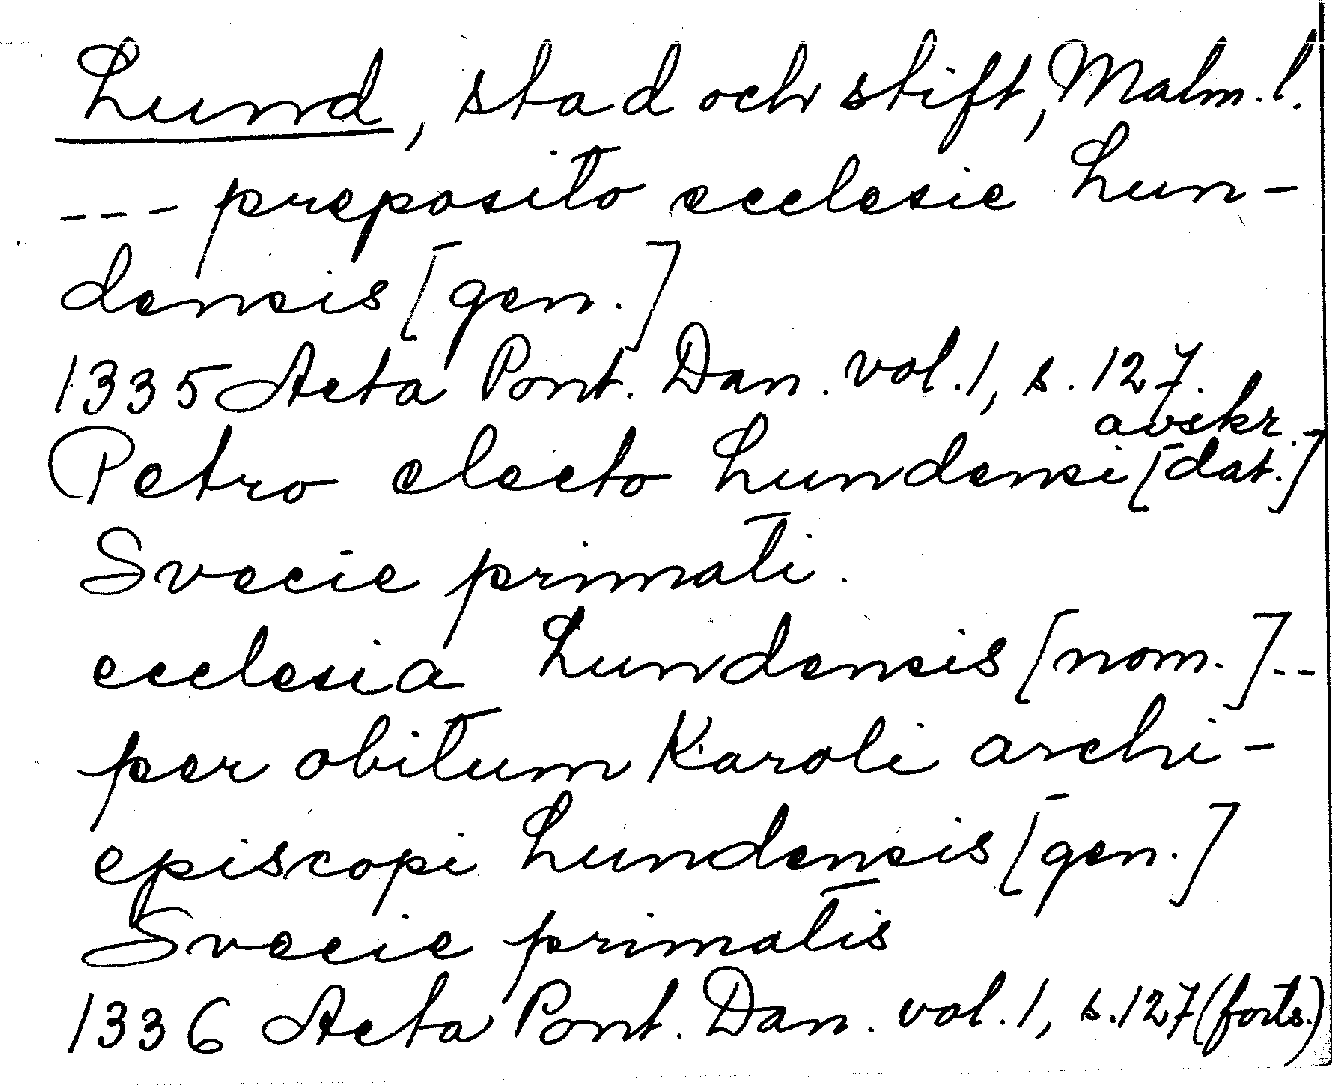 Lund, stad och stift, Malm. l.
--- preposito ecclesie Lun-
densis [gen.]
1335 Acta Pont. Dan. vol. 1, s. 127.
avskr.
Petro electo Lundensi [dat.]
Svecie primati.
ecclesia Lundensis [nom.]---
per obitum Karoli archi-
episcopi Lundensis [gen.]
Svecie primatis
1336 Acta Pont. Dan. vol. 1, s. 127 (forts.)